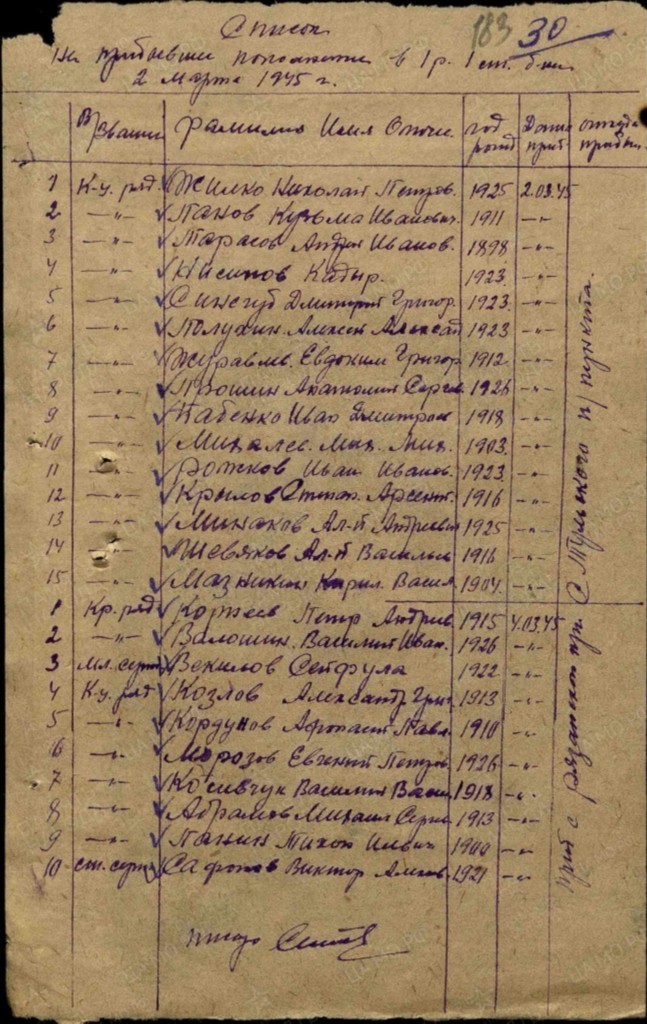 Список
183 30
На прибывшее пополнение в 1 р. 1 ст. б-на
2 Марта 1945 г.
В/Звание Фамилия Имя Отчес. год рожд Дата приб. откуда прибыл.
1 К-ц. ряд. Жилко Николай Петров. 1925 2.03.45
2 —"— Панов Кузьма Иванович. 1911 —"—
3 —"— Тарасов Андрей Иванов. 1898 —"—
4 —"— Кадыр. 1923. —"—
5 —"— Синегуб Дмитрий Григор. 1923. —"—
6 —"— Полухин Алексей Алексан 1923 —"—
7 —"— Журавлев. Евдоким Григор 1912 —"—
8 —"— Анатолий Сергев. 1926 —"—
9 —"— Бабенко Иван Дмитров 1918 —"—
10 —"— Михалев. Мих. Мих. 1903. —"—
11 —"— Рожков Иван Иванов. 1923. —"—
12 —"— Крылов Степан. Арсент. 1916 —"—
13 —"— Минаков Ал-й Андреевич 1925 —"—
14 —"— Шевяков Ал-й Васильев 1916 —"—
15 —"— Мазникин Кирил. Васил. 1904. —"—
С Тульского п/пункта.
1 Кр. ряд. Коржев Петр Андрив. 1915 4.03.45
2 —"— Валошин. Василий Иван. 1926 —"—
3 Мл. серж Векилов Сейфула 1922 —"—
4 К-ц. ряд Козлов Александр Григ 1913 —"—
5 —"— Кордунов Афонасий Павл. 1910 —"—
6 —"— Морозов Евгений Петров. 1926 —"—
7 —"— Косивчук Василий Васил. 1918 —"—
8 —"— Абрамов Михаил Серге. 1913 —"—
9 —"— Панин Тихон 1900 —"—
10 ст. серж Сафонов Виктор Алекс. 1921 —"—
приб с Рязанской пр.
писарь